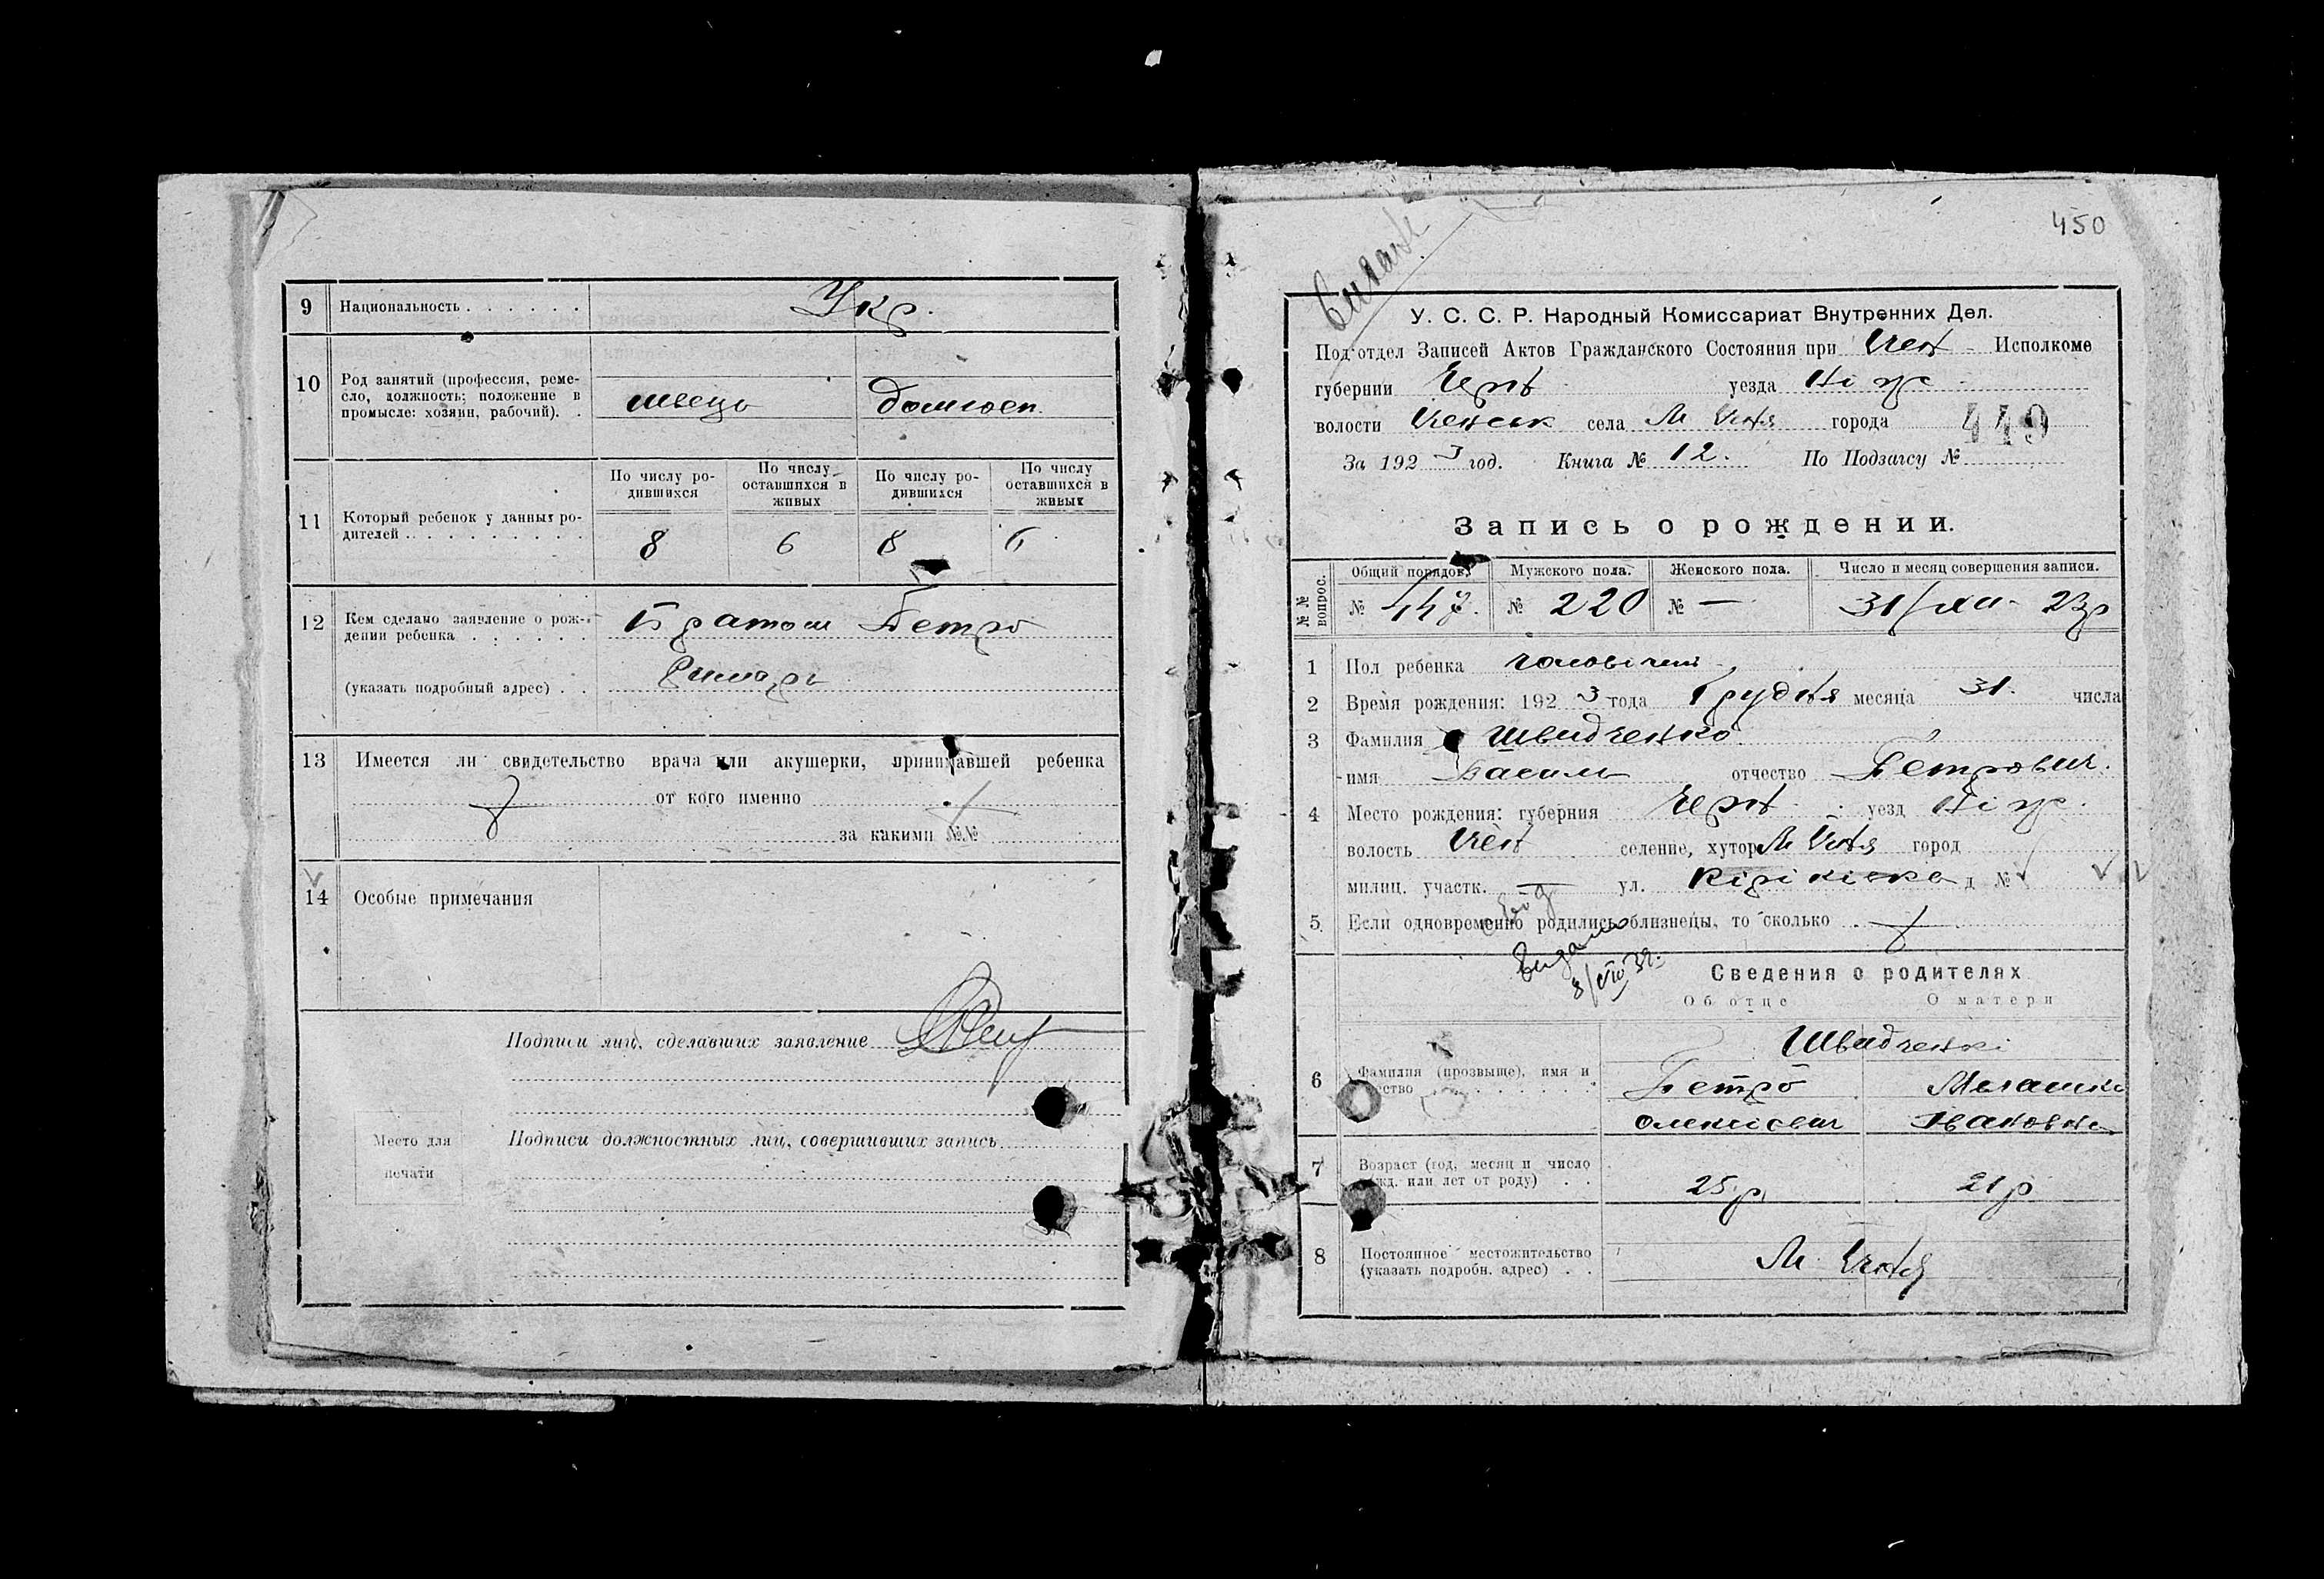 9 Национальность . . . . . . Укр.
10 Род занятий (профессия, реме-
сло, должность; положение в
промысле: хозяин, рабочий). .
швець домгосп.
11 Который ребенок у данных ро-
дителей . . . . . . . . . .
По числу ро-
дившихся
По числу
оставшихся в
живых
По числу ро-
дившихся
По числу
оставшихся в
живых
8 6 8 6
12 Кем сделано заявление о рож-
дении ребенка . . . . . . Братом Петро
(указать подробный адрес) . . Римарь
13 Имеется ли свидетельство врача или акушерки, принимавшей ребенка
от кого именно
за какими №№
14 Особые примечания
Подписи лиц, сделавших заявление
Подписи должностных лиц, совершивших запись
Место для
печати
450
У. С. С. Р. Народный Комиссариат Внутренних Дел.
Подотдел Записей Актов Гражданского Состояния при Ічен Исполкоме
губернии Черн уезда Ніж
волости Іченськ села М Ічня города 449
За 1923 год. Книга № 12. По Подзагсу №
Запись о рождении.
№№ вопрос.
Общий порядов. Мужского пола. Женского пола. Число и месяц совершения записи.
№ 447. № 220 № — 31/XII- 23р
1 Пол ребенка чоловічий
2 Время рождения: 1923 года Грудня месяца 31. числа
3 Фамилия Швидченко
имя Василь отчество Петрович.
4 Место рождения: губерния Черн уезд Ніж.
волость Ічен селение, хутор М Ічня город
милиц. участк. — ул. д №
5 Если одновременно родились близнецы, то сколько
Видано
8/VII 32.
Сведения о родителях
Об отце О матери
6 Фамилия (прозвыще), имя и
отчество . . . . . . . .
Швидченкі
Петро Мелашка
Олексієвич Івановна
7 Возраст (год, месяц и число
рожд. или лет от роду) . .
25 р. 21 р
8 Постоянное местожительство
(указать подробн. адрес) . .
М. Ічня